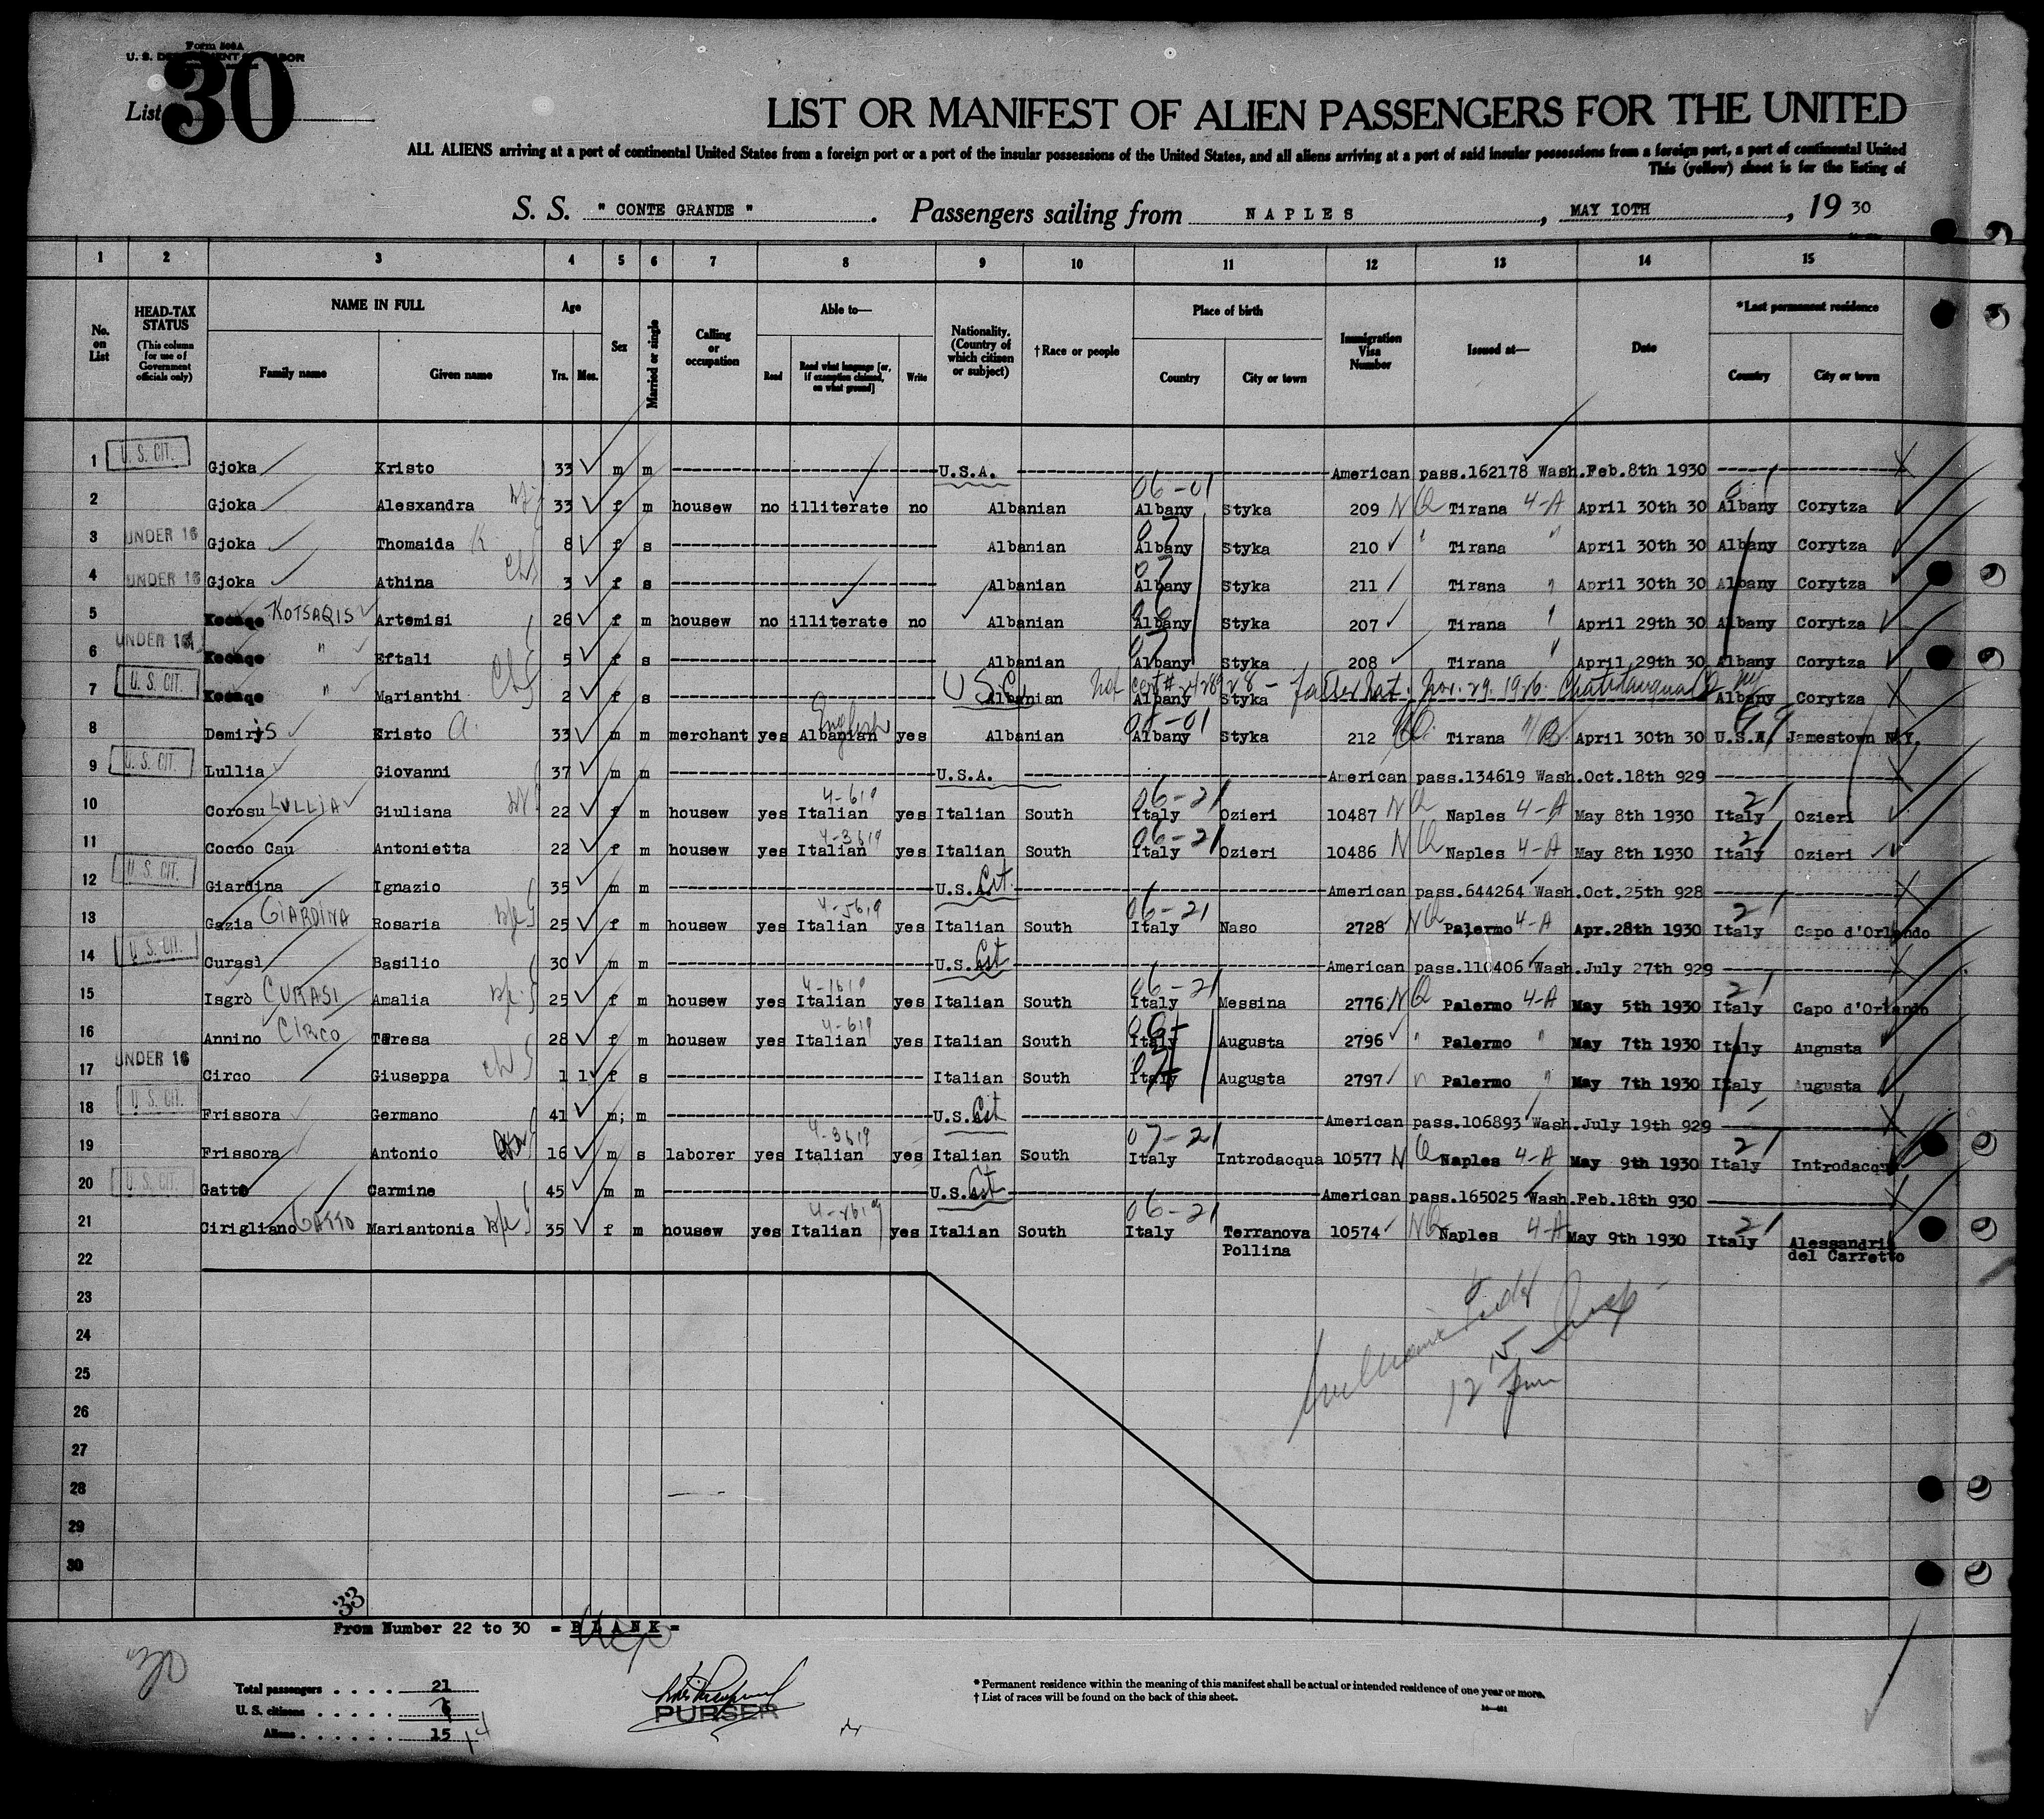 Form 500A
U. S. DEPARTMENT OF LABOR
List 30
LIST OR MANIFEST OF ALIEN PASSENGERS FOR THE UNITED
ALL ALIENS arriving at a port of continental United States from a foreign port or a port of the insular possessions of the United States, and all aliens arriving at a port of said insular possessions from a foreign port, a port of continental United
This (yellow) sheet is for the listing of
S. S. " CONTE GRANDE " . Passengers sailing from NAPLES , MAY 10TH , 19 30
1 2 3 4 5 6 7 8 9 10 11 12 13 14 15
No. on List
HEAD-TAX STATUS (This column for use of Government officials only)
NAME IN FULL Family name Given name
Age Yrs. Mos.
Sex
Married or single
Calling or occupation
Able to— Read Read what language [or, if exemption claimed, on what ground] Write
Nationality. (Country of which citizen or subject)
†Race or people
Place of birth Country City or town
Immigration Visa Number
Issued at—
Date
*Last permanent residence Country City or town
1 U. S. CIT. Gjoka Kristo 33 m m U.S.A. American pass.162178 Wash.Feb.8th 1930
2 Gjoka Alesxandra 33 f m housew no illiterate no Albanian 06-01 Albany Styka 209 NQ Tirana 4-A April 30th 30 Albany Corytza
3 UNDER 16 Gjoka Thomaida 8 f s Albanian Albany Styka 210 " Tirana " April 30th 30 Albany Corytza
4 UNDER 16 Gjoka Athina 3 f s Albanian Albany Styka 211 Tirana " April 30th 30 Albany Corytza
5 KOTSAQIS Artemisi 26 f m housew no illiterate no Albanian Albany Styka 207 Tirana " April 29th 30 Albany Corytza
6 UNDER 16 " Eftali 5 f s Albanian Albany Styka 208 Tirana " April 29th 30 Albany Corytza
7 U. S. CIT. " Marianthi 2 f s U S C Albanian Albany Styka father Nat. Nov. 29. 1926. Albany Corytza
8 Demirjs Kristo A. 33 m m merchant yes English Albanian yes Albanian 06-01 Albany Styka 212 Tirana April 30th 30 U.S.A. Jamestown N.Y.
9 U. S. CIT. Lullia Giovanni 37 m m U.S.A. American pass.134619 Wash.Oct.18th 929
10 Corosu LULLIA Giuliana 22 f m housew yes Italian yes Italian South 06-21 Italy Ozieri 10487 NQ Naples 4-A May 8th 1930 21 Italy Ozieri
11 Cocco Cau Antonietta 22 f m housew yes Italian yes Italian South 06-21 Italy Ozieri 10486 NQ Naples 4-A May 8th 1930 21 Italy Ozieri
12 U. S. CIT. Giardina Ignazio 35 m m U.S.A. Cit. American pass.644264 Wash.Oct.25th 928
13 Gazia GIARDINA Rosaria 25 f m housew yes Italian yes Italian South 06-21 Italy Naso 2728 NQ Palermo 4-A Apr.28th 1930 21 Italy Capo d'Orlando
14 U. S. CIT. Curasì Basilio 30 m m U.S. Cit American pass.110406 Wash.July 27th 929
15 Isgrò CURASI Amalia 25 f m housew yes Italian yes Italian South 06-21 Italy Messina 2776 NQ Palermo 4-A May 5th 1930 21 Italy Capo d'Orlando
16 Annino CIRCO Teresa 28 f m housew yes Italian yes Italian South Italy Augusta 2796 " Palermo " May 7th 1930 Italy Augusta
17 UNDER 16 Circo Giuseppa 1 1 f s Italian South Italy Augusta 2797 " Palermo " May 7th 1930 Italy Augusta
18 U. S. CIT. Frissora Germano 41 m; m U.S. Cit American pass.106893 Wash.July 19th 929
19 Frissora Antonio 16 m s laborer yes Italian yes Italian South 07-21 Italy Introdacqua 10577 NQ Naples 4-A May 9th 1930 21 Italy Introdacqua
20 U. S. CIT. Gatto Carmine 45 m m U.S. Cit American pass.165025 Wash.Feb.18th 930
21 Cirigliano GATTO Mariantonia 35 f m housew yes Italian yes Italian South 06-21 Italy Terranova Pollina 10574 NQ Naples 4-A May 9th 1930 21 Italy Alessandria del Carretto
22
23
24
25
26
27
28
29
30
33
From Number 22 to 30 = BLANK =
30
Total passengers . . . . 21
U. S. citizens . . . . .
Aliens . . . . . . 15 14
PURSER
* Permanent residence within the meaning of this manifest shall be actual or intended residence of one year or more.
† List of races will be found on the back of this sheet.